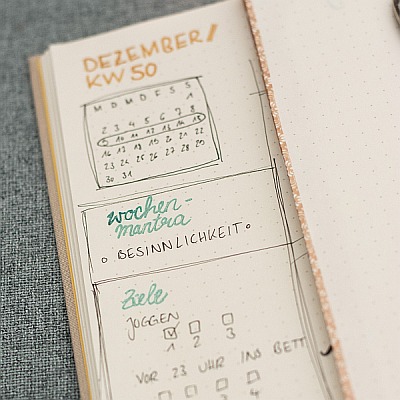 DEZEMBER/
KW 50
M D M D F S S
1
2 3 4 5 6 7 8
9 10 11 12 13 14 15
16 17 18 19 20 21 22
23 24 25 26 27 28 29
30 31
wochen-
mantra
BESINNLICHKEIT
Ziele
JOGGEN
1 2 3
VOR 23 UHR INS BETT